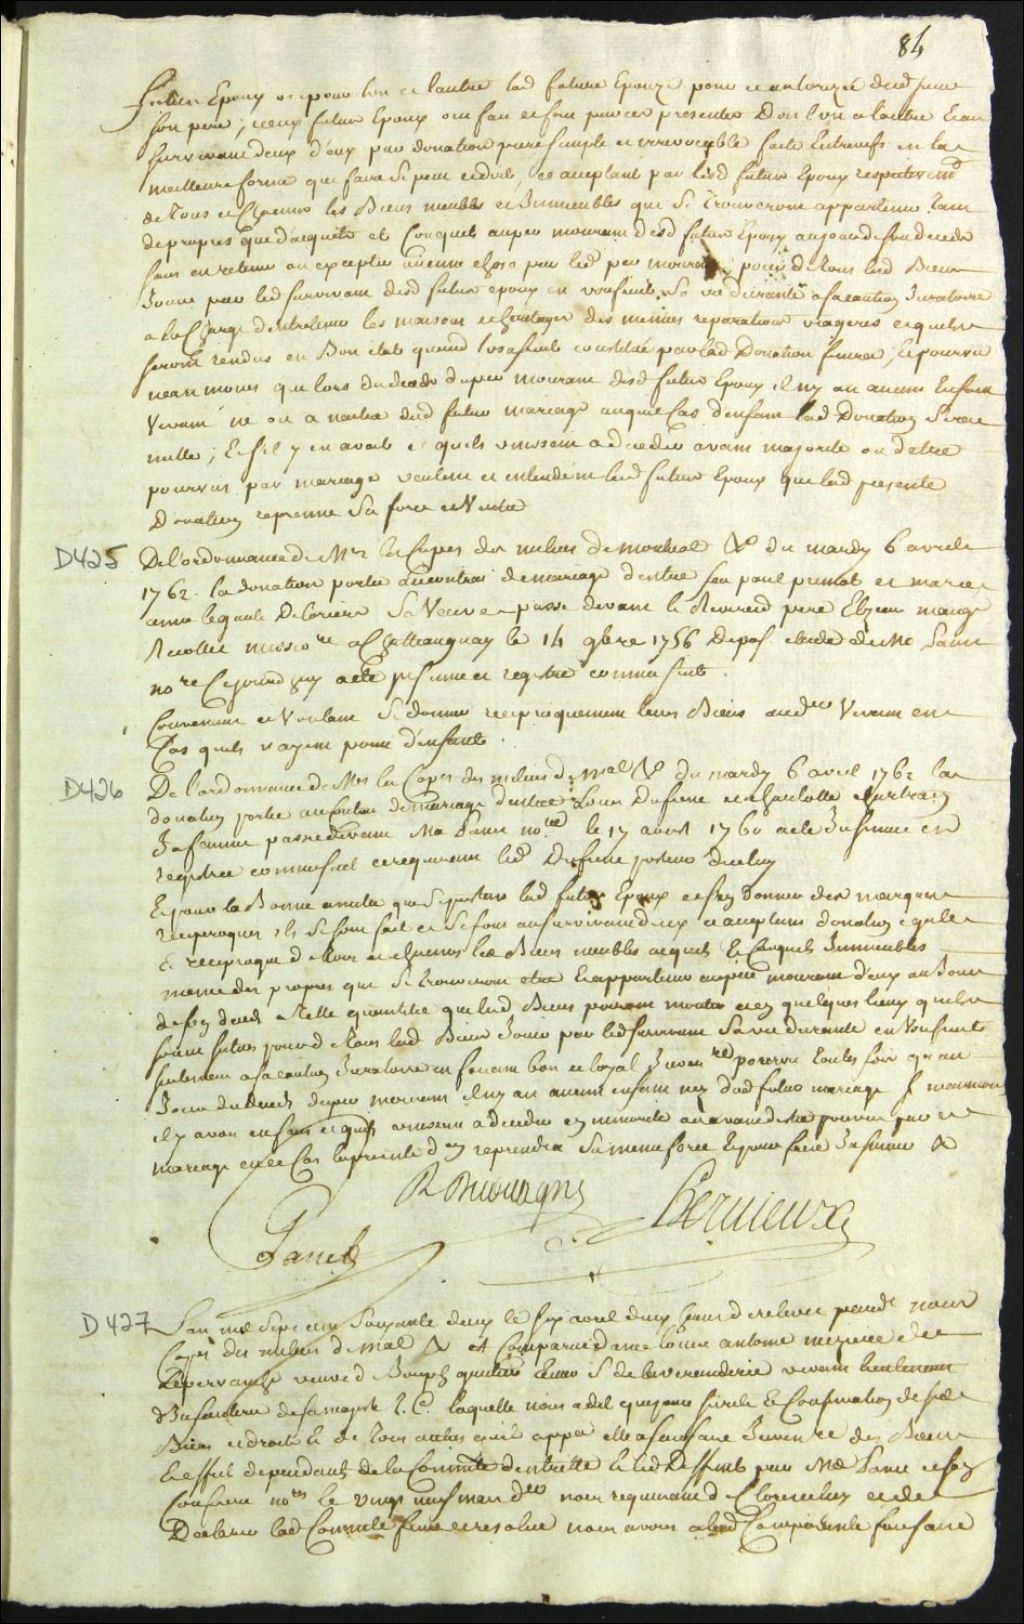 84
futur Epoux et pour l'un et l'autre lad future Epouze pour ce autorizée dud sieur
son pere; iceux futur Epoux ont fait et font par ces presentes Don l'un a l'autre Et au
survivant deux d'eux par donation pure simple et irrevocable faite Entrevifs en la
meilleure forme que faire Se peut et doit ce acceptant par lesd futur Epoux respectivemt
de Tous et Chacuns les Biens meubles et Immeubles que Se Trouveront appartenir Tant
de propres que d'acquets et Conquets au per mourant desd futur Epoux au jour de son deceds
sans en retenir ou excepter aucune chose par led per mourant pour de Tous lesd Biens
Jouir par led survivant desd futur epoux en usufruit Sa vie durante a sa caution Juratoire
a la Charge d'entretenir les maisons et heritages des menues reparations viageres et qu'elles
seront rendus en Bon etat quand l'usufruit constitué par lad Donation finira; Et pourvu
neanmoins que lors du deceds du per mourant desd futur Epoux il n'y ait aucun Enfant
Vivant né ou a naitre dud futur mariage auquel Cas d'enfant lad Donation Sera
nulle; Et s'il y en avoit et qu'ils vinssent a deceder avant majorité ou d'etre
pourvus par mariage veulent et entendent lesd futur Epoux que lad presente
Donation reprenne Sa force et Vertu
D425 De l'ordonnance de Mrs les Capes des milices de montreal &a du mardy 6 avril
1762. la donation portée au contrat de mariage d'entre feu paul primot et marie
anne Sa Veuve passé devant le Reverend pere Elzear mauge
Recollet missionre a Chatteauguay le 14 9bre 1756 depose etude de Me Panet
nore Ce jourd'huy a eté insinué et registré comme suit.
Convenant et Voulant Se donner reciproquement leurs Biens aud Vivant en
Cas qu'ils n'ayent point d'enfants.
D426 De l'ordonnance de Mrs les Capes des milices de Mal &a du mardy 6 avril 1762 la
donation portée au Contrat de mariage d'entre Louis Dufresne et charlotte
Sa femme passé devant Me Panet nore le 17 aoust 1760 a eté Insinué et
registré comme suit ce requerant led Dufresne porteur d'icelluy
Et pour la Bonne amitié que Se portent lesd futurs Epoux et s'en donner des marques
reciproques ils se sont fait et Se font au survivant d'eux ce acceptant donation egale
& reciproque de tous et chacuns les Biens meubles acquets Et Conquets Immeubles
meme des propres que Se trouveront etre Et appartenir au per mourant d'eux au Jour
de son deceds a telle quantité que lesd Biens pouront monter et en quelques lieux qu'ils
soient situés pour de Tous lesd Biens Jouir par led survivant Sa vie durante en Usufruit
seulement a sa caution Juratoire en faisant bon et loyal Inventre pourvu toutes fois qu'au
Jour du deceds du per mourant il n'y ait aucuns enfans nez dud futur mariage si neanmoins
il y avoit enfans et qu'ils vinssent a deceder en minorité ou avant d'etre pourvus par
mariage en ce Cas la presente d en reprendra Sa meme force Et pour faire Insinuer &
R Decouagne
Hervieux
Panet
D427 L'an mil sept cens Soixante deux le six avril deux heures de relevée pardt nous
Capes des milices de Mal &a est Comparue dame Louise antoine mezieres de
Lepervanche veuve de Joseph Ecuier S. de la verenderie vivant lieutenant
d'Infanterie de sa majesté T. C. laquelle nous a dit que pour sureté Et Conservation de ses
Biens et droits Et de tous autres qu'il appa elle a fait faire Inventre des Biens
Et effets dependants de la Communté d'entre elle Et led Deffunt par Me Panet et son
Confrere nores le vingt neuf mars dr nous requerant de Clore icelluy et de
Declarer lad Communté finie et resolue nous avons a lad Comparante fait faire